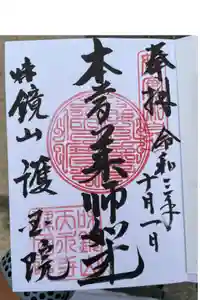 奉拝
令和三年
十月一日
本尊薬師如来
味鏡山
護国院